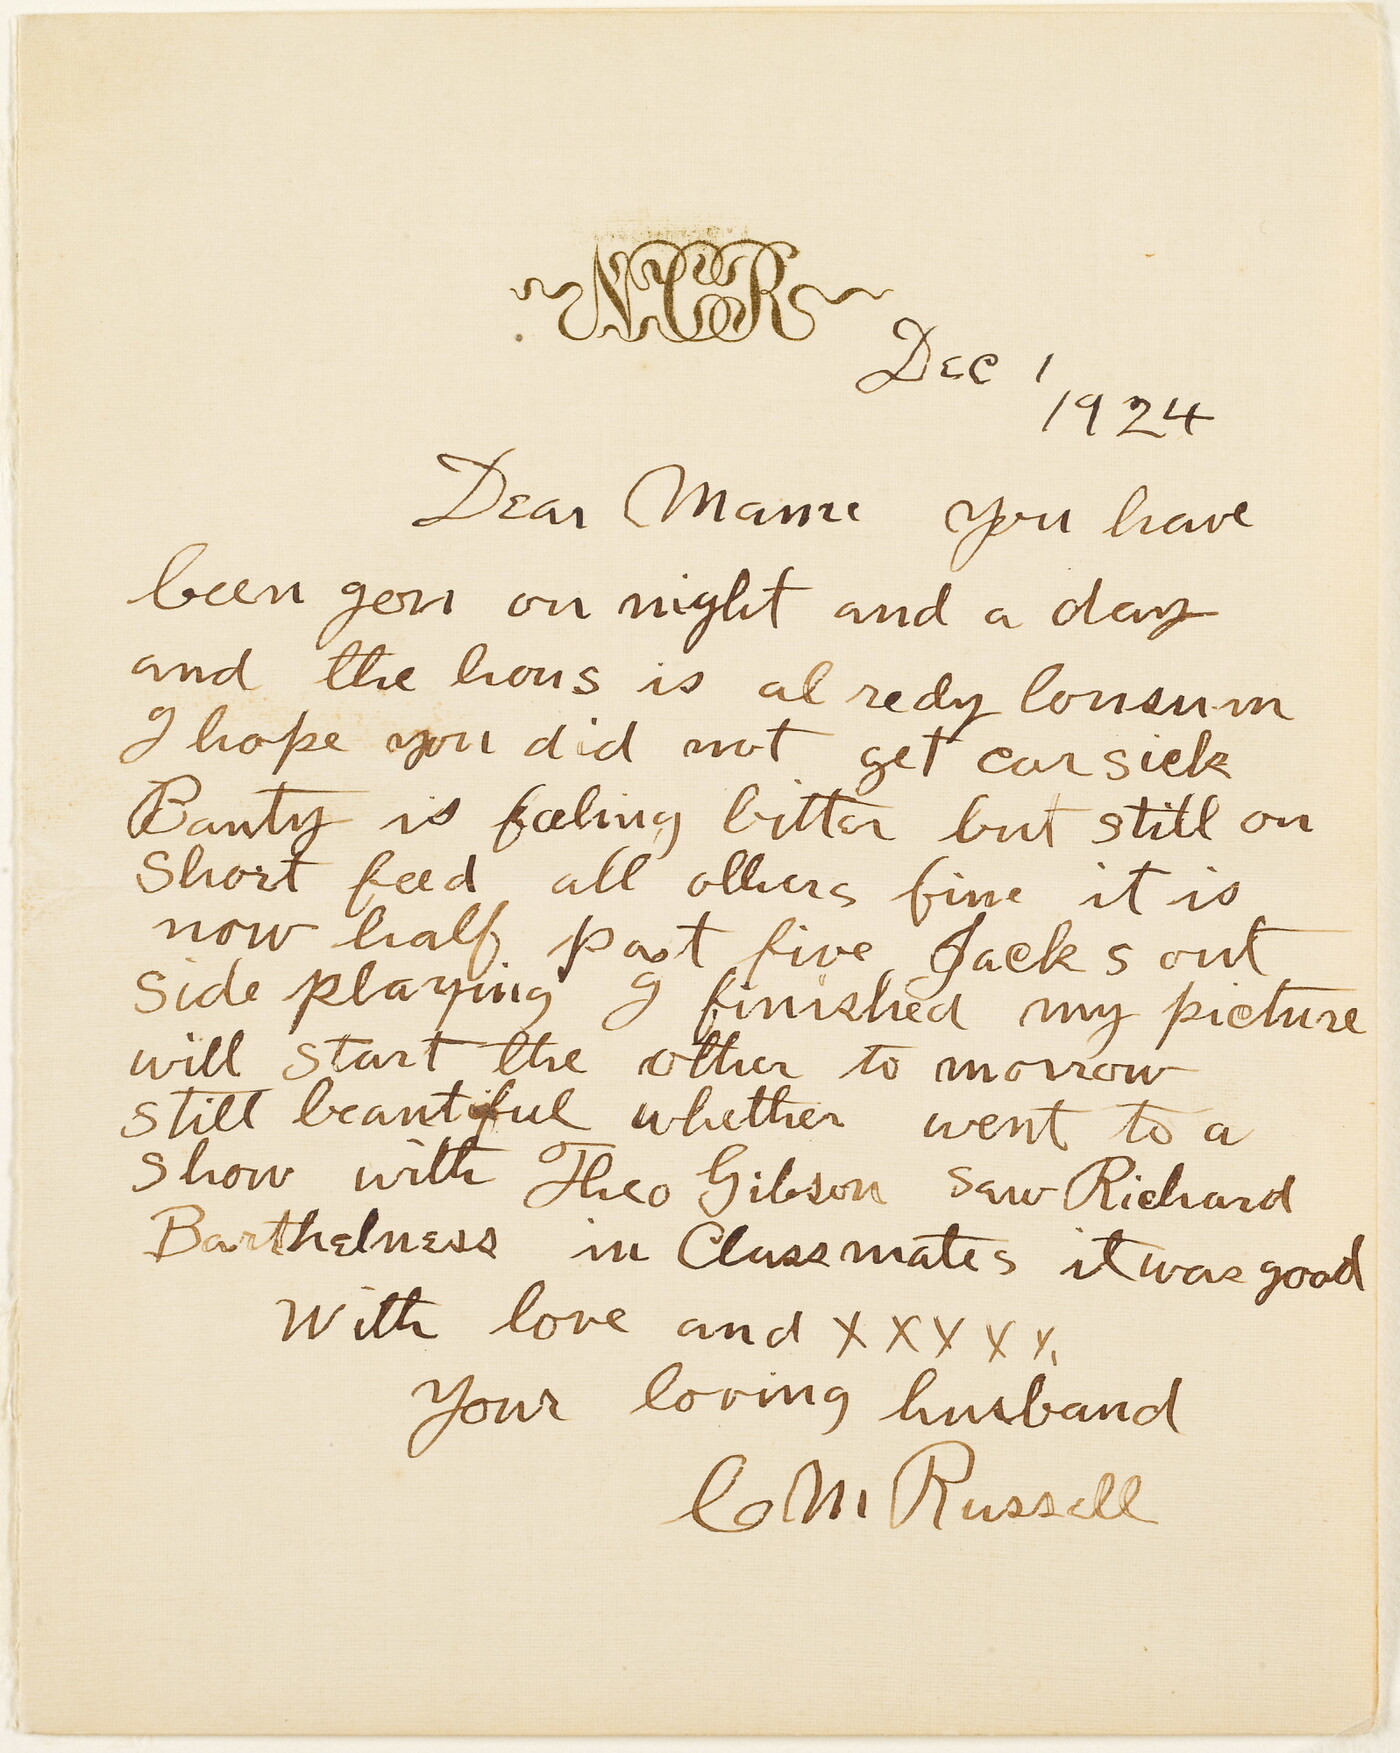 NCR
Dec 1
1924
Dear Mame you have
been gon on night and a day
and the hous is al redy lonsum
I hope you did not get car sick
Banty is feeling bitter but still on
Short feed all others fine it is
now half past five Jack s out
side playing I finished my picture
will start the other to morrow
still beautiful whether went to a
show with Theo Gibson saw Richard
Barthelness in Classmates it was good
With love and X X X X X
Your loving husband
C M Russell